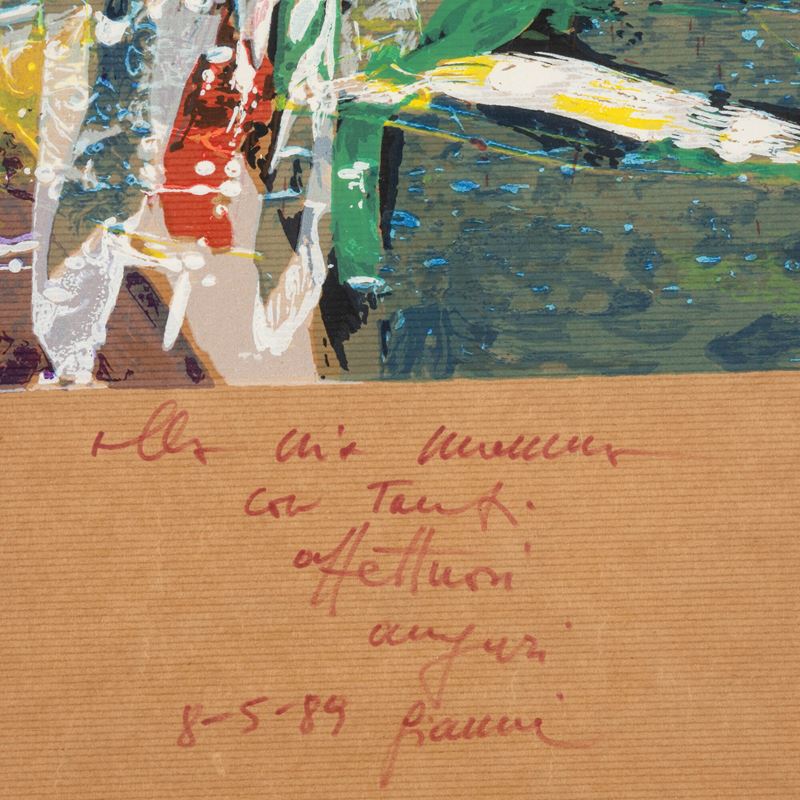 alla mia mamma
con Tanti
affettuosi
auguri
8-5-89 Gianni